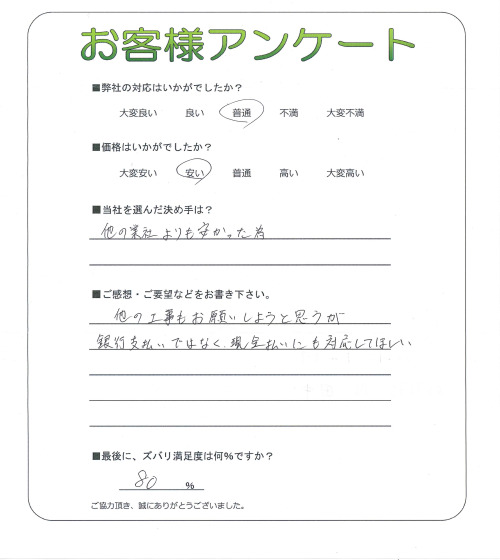 お客様アンケート
■弊社の対応はいかがでしたか？
大変良い 良い 普通 不満 大変不満
■価格はいかがでしたか？
大変安い 安い 普通 高い 大変高い
■当社を選んだ決め手は？
他の業社よりも安かった為
■ご感想・ご要望などをお書き下さい。
他の工事もお願いしようと思うが
銀行支払いではなく、現金払いにも対応してほしい
■最後に、ズバリ満足度は何%ですか？
80 %
ご協力頂き、誠にありがとうございました。